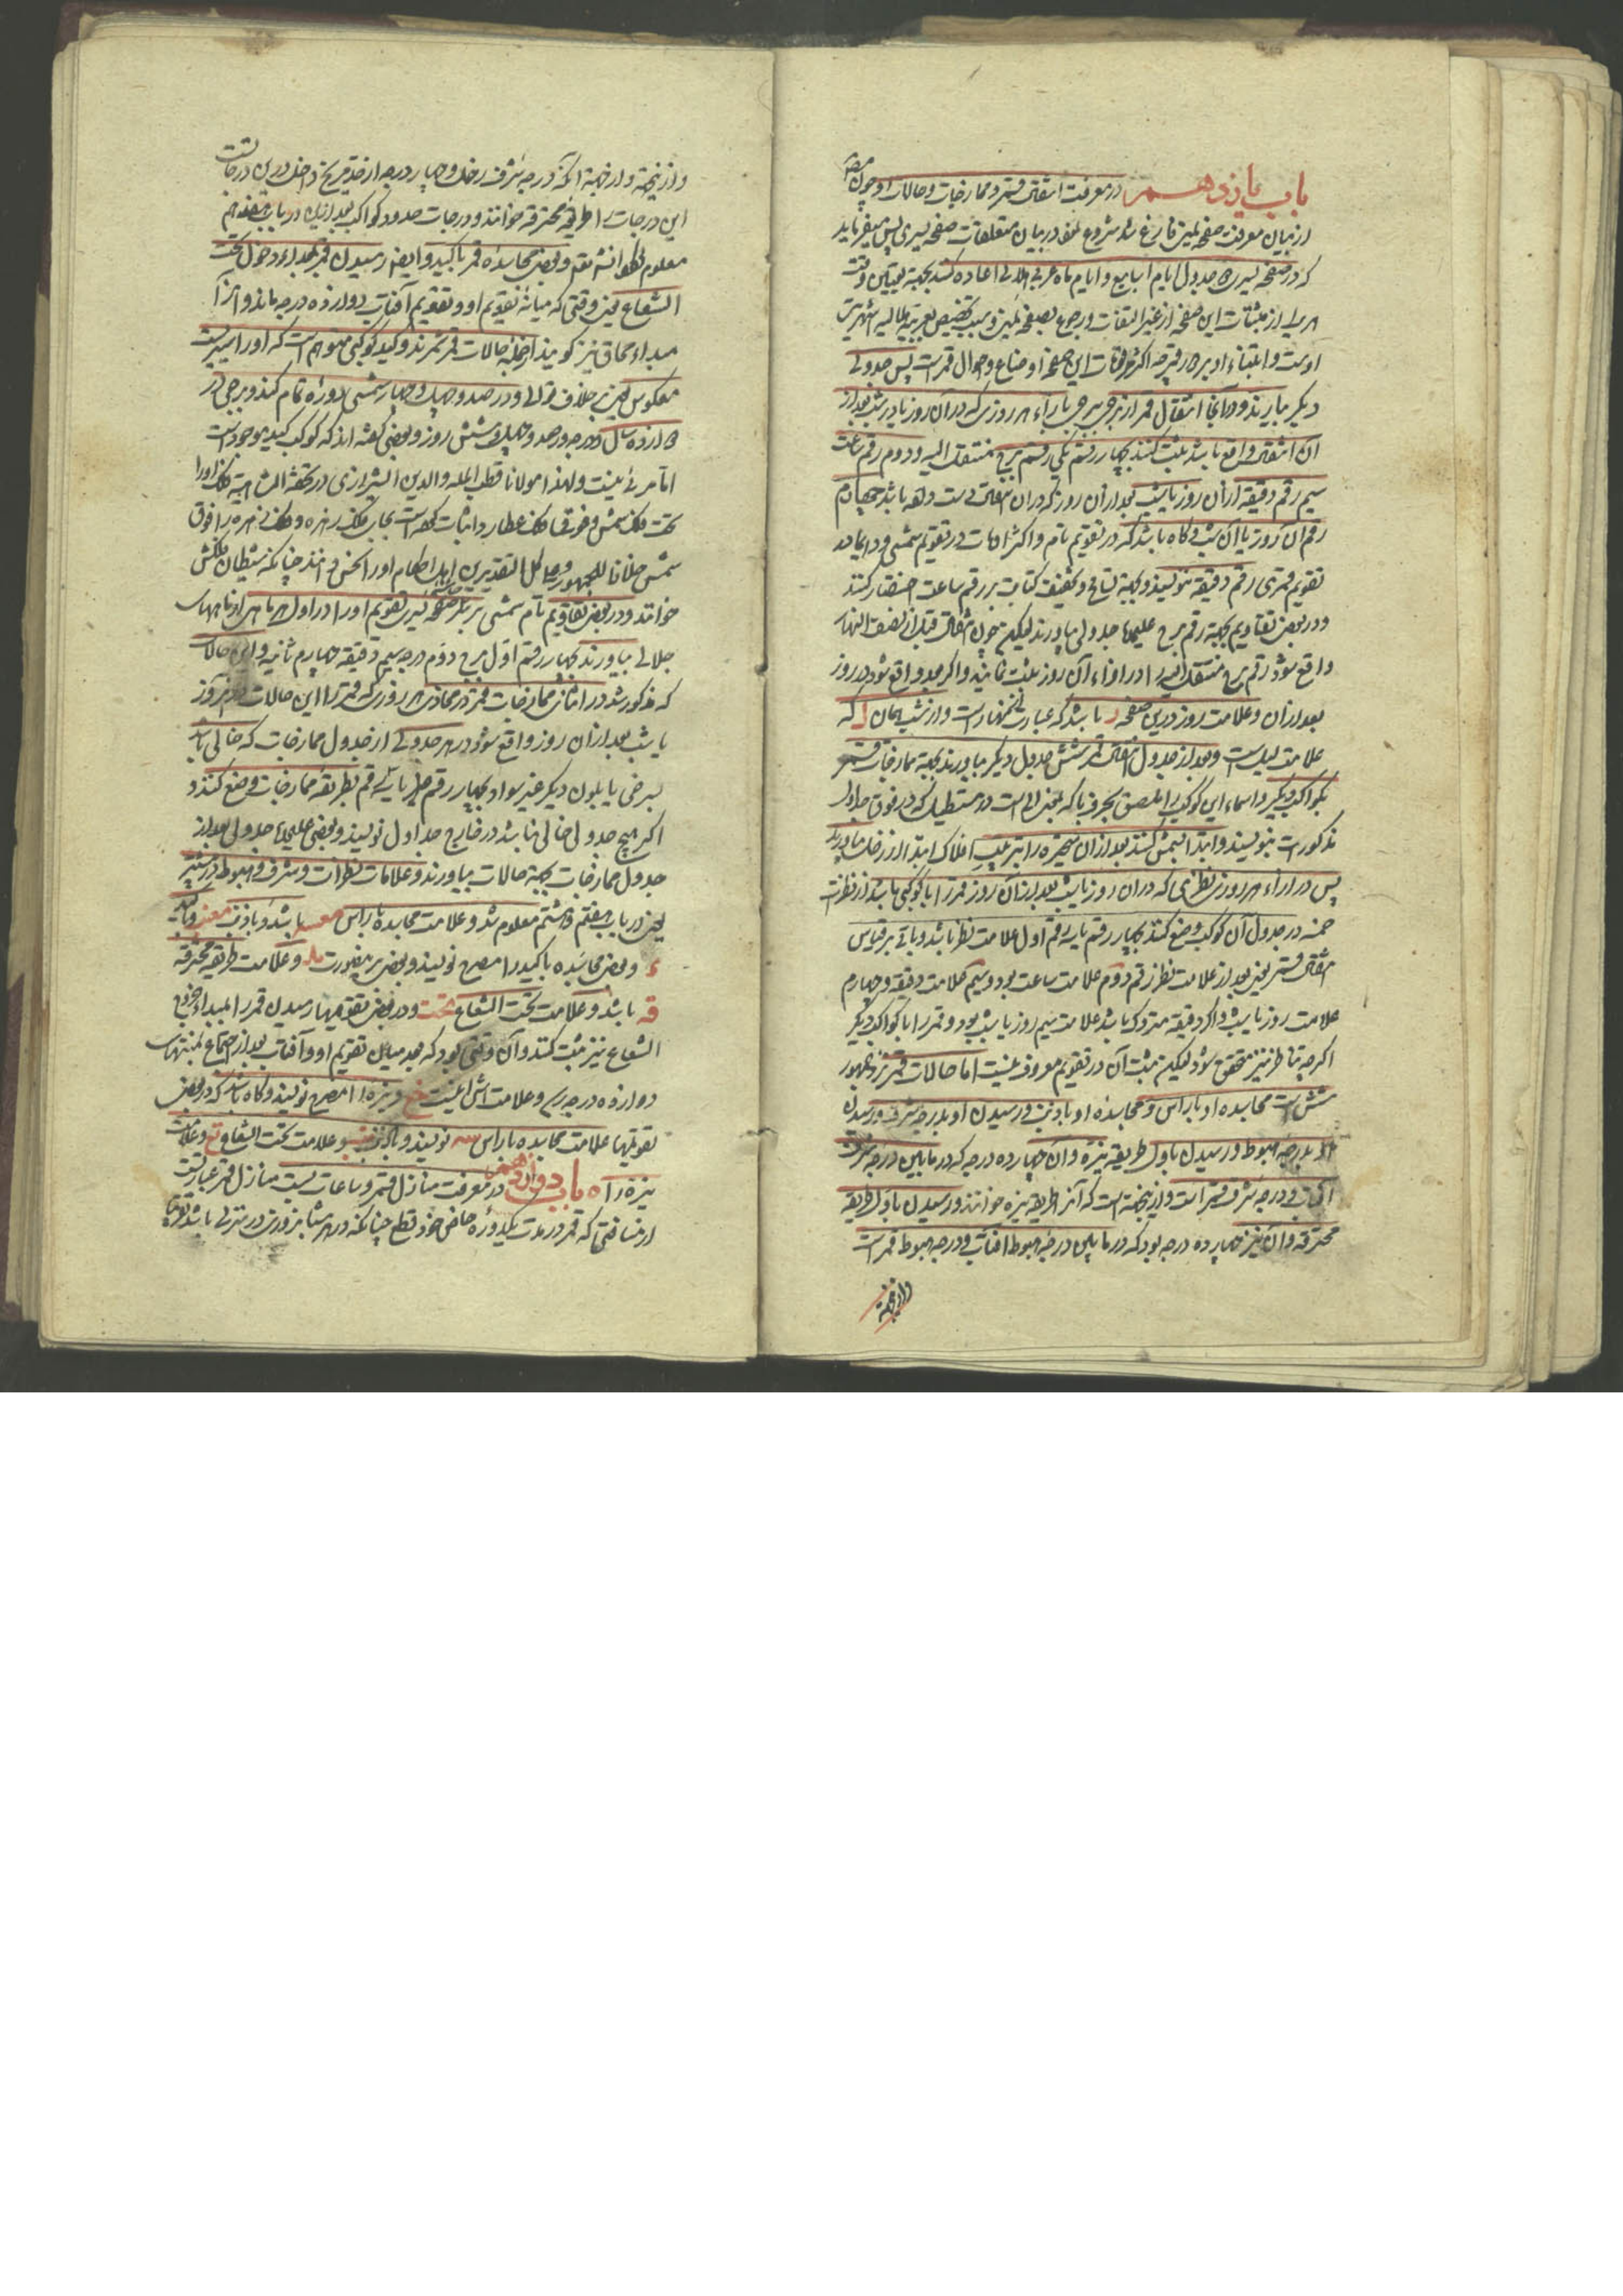 باب یازدهم در معرفت انتقال قمر و ممازجات و حالات او چون مصنف
از بیان معرفت صفحه یمین فارغ شد شروع نمود در بیان متعلقات صفحه یسری پس میفرماید
که در صفحه یسری جدول ایام اسابیع و ایام ماه عربی هلالی اعاده کنند بجهة تعیین وقت
هر یک از مثبتات این صفحه از غیر التفات و رجوع بصفحه یمین و سبب تخصیص بعربیة هلالیه اشهریت
اوست و ابتناء او بر قمر چه اکثر مرقومات این صفحه اوضاع و احوال قمر است پس جدولی
دیگر بیارند و در آنجا انتقال قمر از برجی ببرجی بازاء هر روزی که در آن روز یا در شب بعد از
آن انتقال واقع باشد ثبت کنند بچهار رقم یکی رقم برج منتقل الیه و دوم رقم ساعت
سیم رقم دقیقه از آن روز یا شب بعد از آن روز که در آن انتقال دست دهد باشد چهارم
رقم آن روز یا آن شب و گاه باشد که در تقویم تام و اکثر اوقات در تقویم شمسی و دایما در
تقویم قمری رقم دقیقه ننویسند و بجهة تسامح و تخفیف کتابت بر رقم ساعت اختصار کنند
و در بعضی تقاویم بجهة رقم برج علیحده جدولی بیاورند لیکن چون انتقال قبل از نصف النهار
واقع شود رقم برج منتقل الیه را در ازاء آن روز ثبت نمایند و اگر بعد واقع شود در روز
بعد از آن و علامت روز درین صفحه ر باشد که عبارت از نهار است و از شب همان ل که
علامت لیل است و بعد از جدول انتقال قمر شش جدول دیگر بیاورند بجهة ممازجات قمر
بکواکب دیگر و اسماء این کواکب را ملصق بحروف با که بمنزله است در مستطیلی که در فوق جداول
مذکور است بنویسند و ابتدا بشمس کنند بعد از آن متحیره را بترتیب افلاک ابتدا از زحل بیاورند
پس در ازاء هر روز نظری که در آن روز یا شب بعد از آن روز قمر را با کوکبی باشد از نظرات
خمسه در جدول آن کوکب وضع کنند بچهار رقم یا سه رقم اول علامت نظر باشد و باقی بر قیاس
انتقال قمر یعنی بعد از علامت نظر رقم دوم علامت ساعت بود و سیم علامت دقیقه و چهارم
علامت روز یا شب و اگر دقیقه متروک باشد علامت سیم روز یا شب بود و قمر را با کواکب دیگر
اگرچه تناظر نیز متحقق شود لیکن ثبت آن در تقویم معروف نیست اما حالات قمر نزد جمهور
شش است مجاسده او با راس و مجاسده او با ذنب و رسیدن او بدرجه شرف و رسیدن
او بدرجه هبوط و رسیدن باول طریقه نیره و آن چهارده درجه که در مابین درجه شرف
آفتاب و درجه شرف قمر است و از ینجهة است که آنرا طریقه نیره خوانند و رسیدن باول طریقه
محترقه و آن نیز چهارده درجه بود که در مابین درجه هبوط آفتاب و درجه هبوط قمر است
و از ینجهة
و از ینجهة و از جهة آنکه درجه شرف زحل و چهار درجه از حد مریخ داخل درین درجات است
این درجات را طریقه محترقه خوانند و درجات حدود کواکب بعد ازین در باب هفدهم
معلوم خواهد شد و بعضی مجاسده قمر با کید و ایضا رسیدن قمر بمبداء دخول تحت
الشعاع یعنی وقتی که میانه تقویم او و تقویم آفتاب دوازده درجه ماند و آنرا
مبداء محاق نیز گویند از جمله حالات قمر شمرند و کید کوکبی متوهم است که او را سیریست
معکوس یعنی بر خلاف توالی و در صد و چهل و چهار سال شمسی دوره تمام کند و برجی در
دوازده سال و درجه در صد و چهل و شش روز و بعضی گفته اند که کوکب کید موجود است
اما مرئی نیست و لهذا مولانا قطب المله والدین الشیرازی در تحفة الشاهیه فلک او را
تحت فلک شمس و فوق فلک عطارد اثبات کرده است بجای فلک زهره و فلک زهره را فوق
شمس خلافا للجمهور و علی کل التقدیرین اهل احکام او را نحس دانند چنانکه شیطان فلکش
خوانند و در بعضی تقاویم تام شمسی بر بالای صفحه یسری تقویم او را در اول هر ماهی از ماههای
جلالی بیاورند بچهار رقم اول برج دوم درجه سیم دقیقه چهارم ثانیه و این حالات
که مذکور شد در اثنای ممازجات قمر در محاذی هر روزی که قمر را این حالات در آن روز
یا شب بعد از آن روز واقع شود در هر جدولی از جدول ممازجات که خالی باشد
بسرخی یا بلون دیگر غیر سواد بچهار رقم یا سه رقم بطریقه ممازجات وضع کنند و
اگر هیچ جدولی خالی نباشد در خارج جداول نویسند و بعضی علیحده جدولی بعد از
جدول ممازجات بجهة حالات بیاورند و علامات نظرات و شرف و هبوط در پیشتر
یعنی در باب هفتم و هشتم معلوم شد و علامت مجاسده با راس معسه باشد و با ذنب معنب و با کید
ء و بعضی مجاسده با کید را مصرح نویسند و بعضی برینصورت ملد و علامت طریقه محترقه
قه باشد و علامت تحت الشعاع تحت و در بعضی تقویمها رسیدن قمر را بمبداء خروج
الشعاع نیز ثبت کنند و آن وقتی بود که بعد میان تقویم او و آفتاب بعد از اجتماع بمنتهای
دوازده درجه رسد و علامتش اینست خ و نیره را مصرح نویسند و گاه باشد که در بعضی
تقویمها علامت مجاسده با راس سه نویسند و با ذنب نب و علامت تحت الشعاع تع و علامت
نیره راه باب دوازدهم در معرفت منازل قمر و ساعات بست منازل قمر عبارتست
از مسافتی که قمر در مدت یکدوره خاص خود قطع چنانکه در هر شبانروزی در منزلی باشد تقریبا